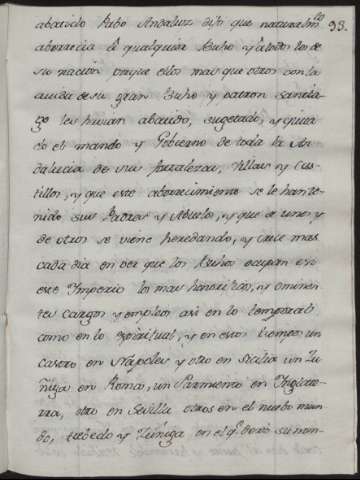 abatido Buho Andaluz dijo que naturalm.te 93.
aborrecia â qualquier Buho y â todos los de
su nacion porque ellos mas que otros con la
aiuda de su gran Buho y patron Santia-
go les havian abatido, sugetado, y quita-
do el mando y Gobierno de toda la An-
dalucia de sus fortalezas, Villas y Cas-
tillos, y que este aborrecimiento se le han te-
nido sus Padres y Abuelos, y que de unos y
de otros se viene heredando, y crece mas
cada dia en ver que los Buhos ocupan en
este Imperio los mas honorificos, y eminen-
tes cargos y empleos asi en lo temporal
como en lo espiritual, y en estos tiempos un
Castro en Napoles y otro en Sicilia un Zu-
ñiga en Roma, un Sarmiento en Inglater-
ra, otro en Sevilla otros en el nuebo mun-
do, Azebedo y Zuñiga en el q.e dexò su nom-